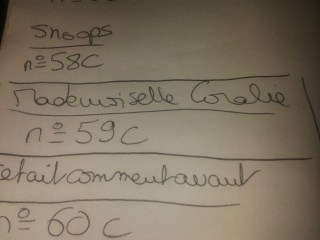 Snoops
n° 58C
Mademoiselle Coralie
n° 59C
etaitcommentavant
n° 60 C